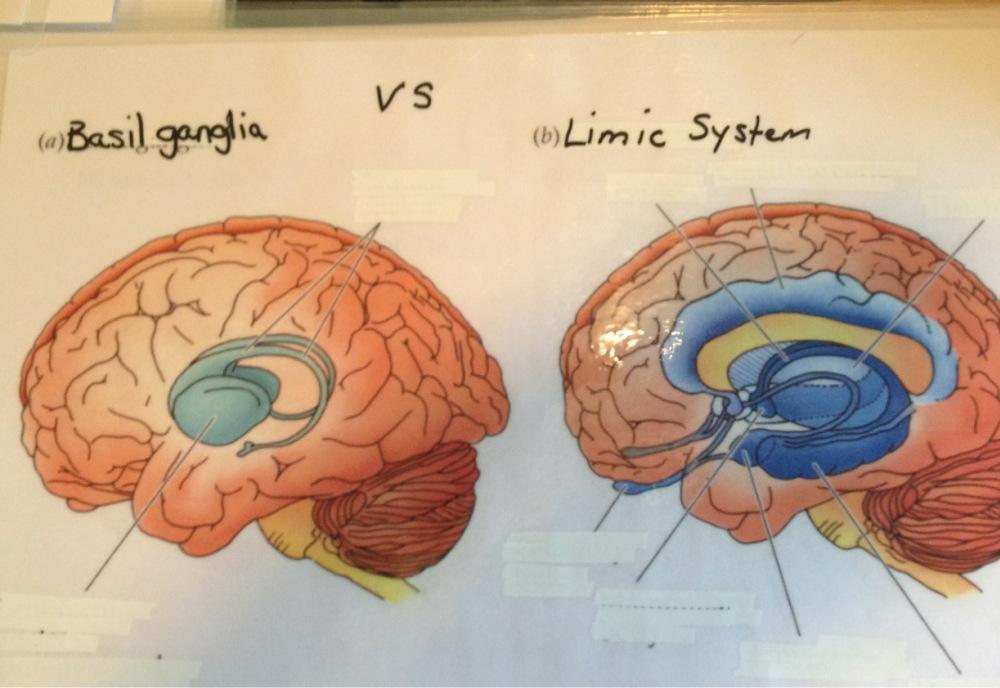 VS
(a) Basil ganglia
(b) Limic System